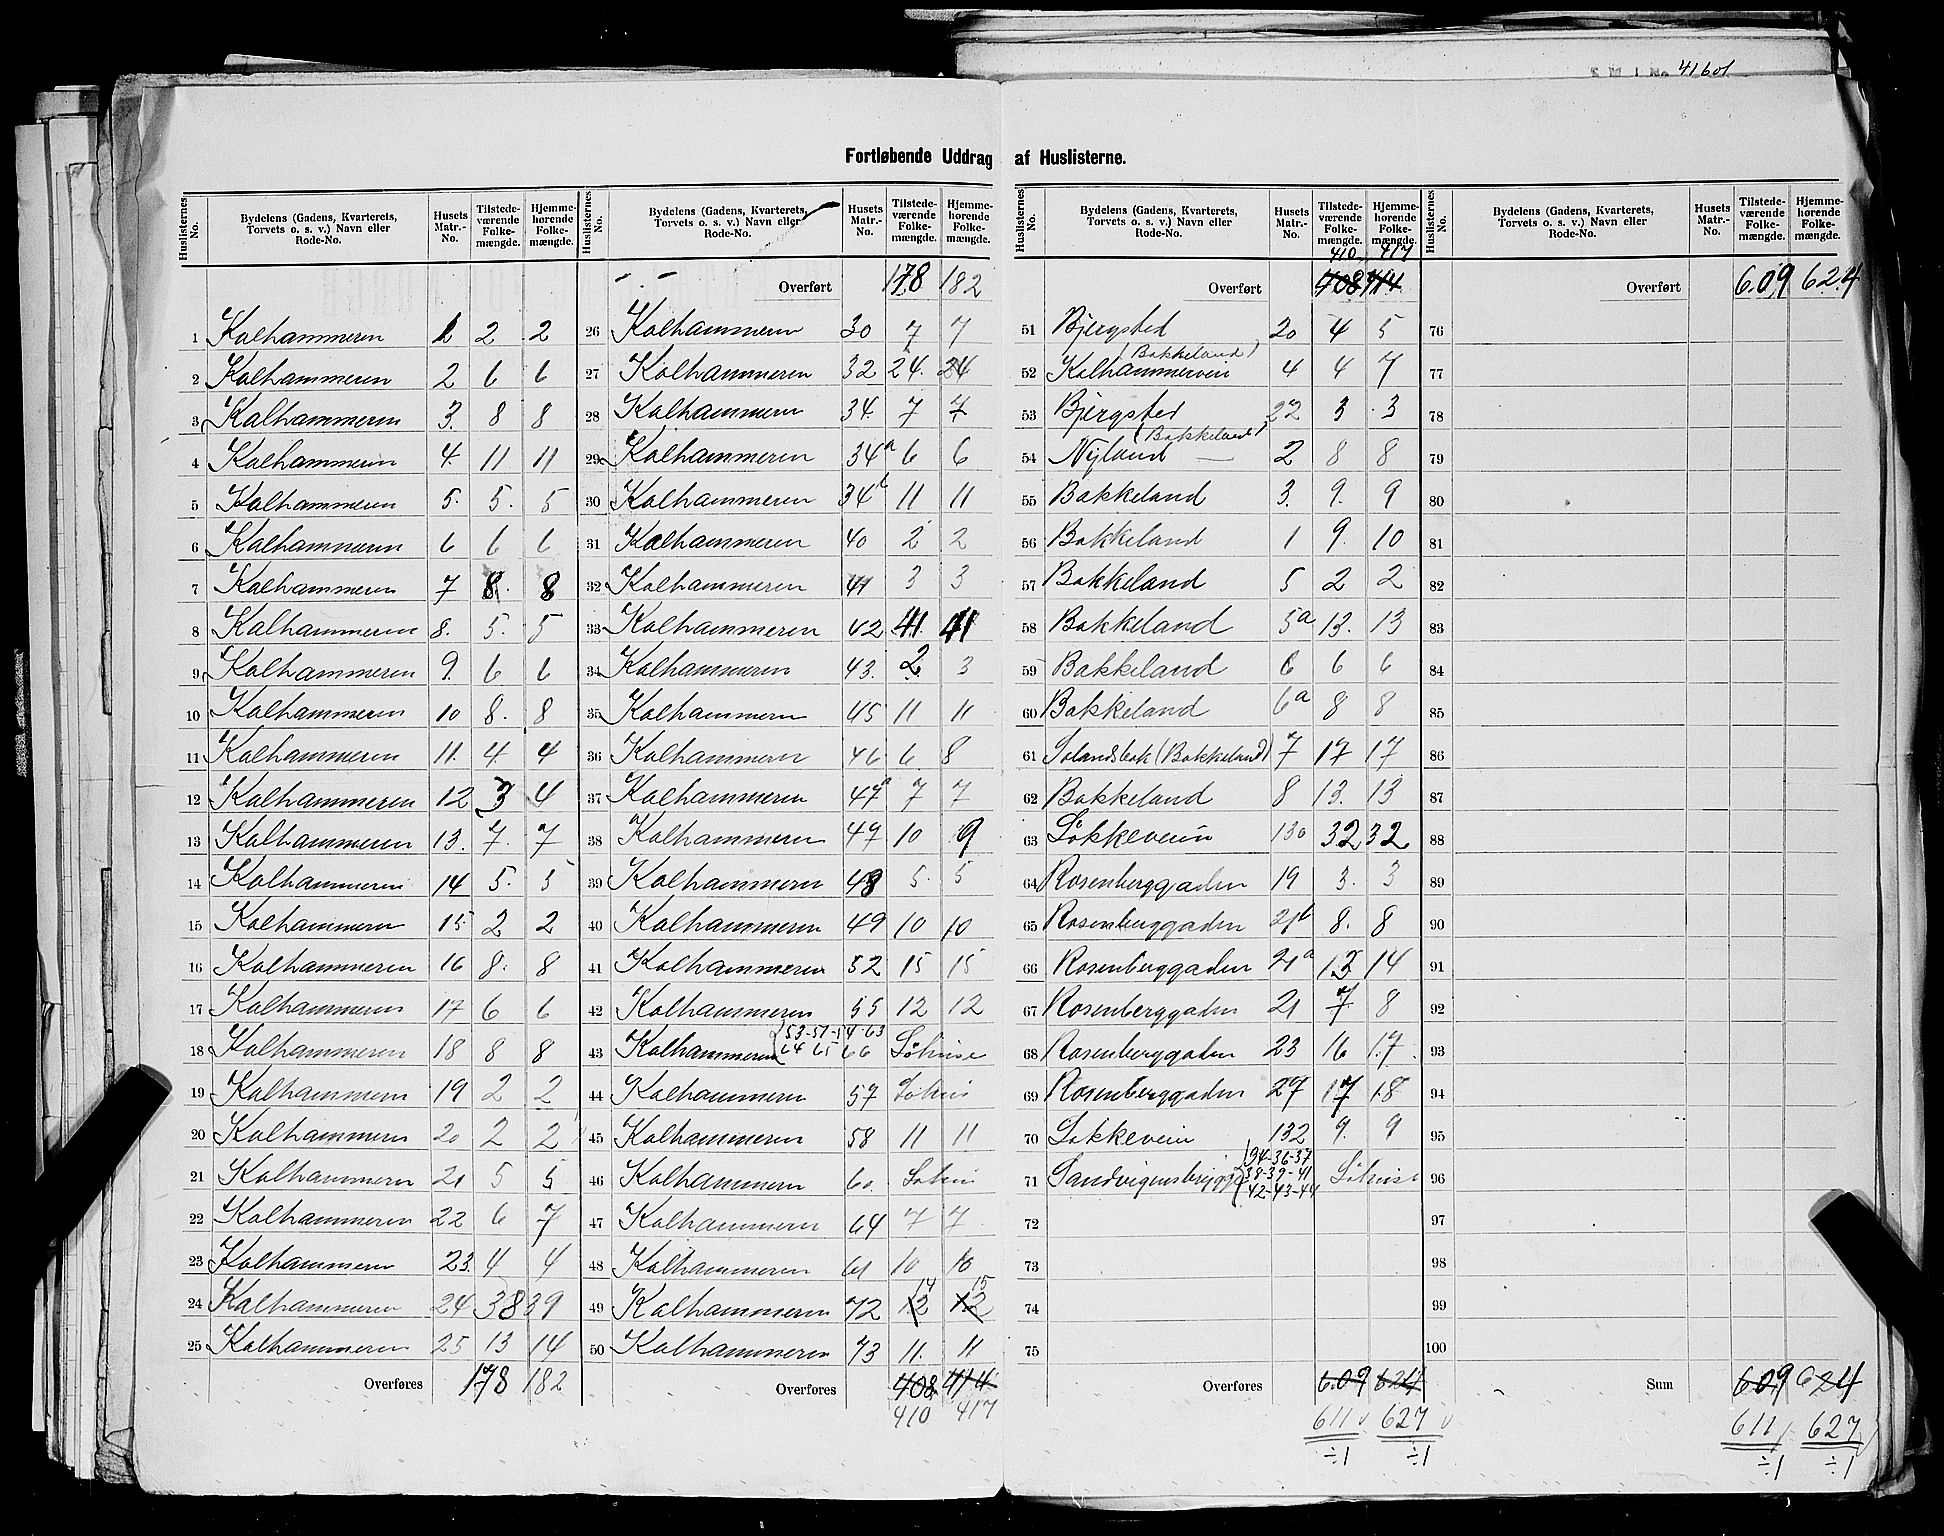 41601
Fortløbende Uddrag af Huslisterne.
Huslisternes No. | Bydelens (Gadens, Kvarterets, Torvets o. s. v.) Navn eller Rode-No. | Husets Matr.-No. | Tilstedeværende Folkemængde. | Hjemmehørende Folkemængde.
1 Kolhammeren 1 2 2
2 Kolhammeren 2 6 6
3 Kolhammeren 3. 8 8
4 Kolhammeren 4. 11 11
5 Kolhammeren 5. 5. 5
6 Kolhammeren 6 6 6
7 Kolhammeren 7 8. 8
8 Kolhammeren 8. 5. 5
9 Kolhammeren 9. 6 6
10 Kolhammeren 10 8. 8
11 Kolhammeren 11. 4. 4
12 Kolhammeren 12 3 4
13 Kolhammeren 13. 7. 7
14 Kolhammeren 14 5. 5
15 Kolhammeren 15 2 2
16 Kolhammeren 16 8. 8
17 Kolhammeren 17 6 6
18 Kolhammeren 18 8 8
19 Kolhammeren 19 2 2
20 Kolhammeren 20 2 2
21 Kolhammeren 21 5 5
22 Kolhammeren 22 6 7
23 Kolhammeren 23. 4 4
24 Kolhammeren 24 38 39
25 Kolhammeren 25 13 14
Overføres 178 182
Huslisternes No. | Bydelens (Gadens, Kvarterets, Torvets o. s. v.) Navn eller Rode-No. | Husets Matr.-No. | Tilstedeværende Folkemængde. | Hjemmehørende Folkemængde.
Overført 178 182
26 Kolhammeren 30 7 7
27 Kolhammeren 32 24. 24
28 Kolhammeren 34. 7 7
29 Kolhammeren 34a 6 6
30 Kolhammeren 34b 11 11
31 Kolhammeren 40 2 2
32 Kolhammeren 41 3 3
33 Kolhammeren 42 41. 41
34 Kolhammeren 43. 2 3
35 Kolhammeren 45 11 11
36 Kolhammeren 46 6 8
37 Kolhammeren 47a 7 7
38 Kolhammeren 47 10 9
39 Kolhammeren 48 5. 5
40 Kolhammeren 49 10 10
41 Kolhammeren 52 15 15
42 Kolhammeren 55 12 12
43 Kolhammeren 53-51-54-63 64 65 66
44 Kolhammeren 57
45 Kolhammeren 58 11 11
46 Kolhammeren 60
47 Kolhammeren 64 7 7
48 Kolhammeren 61 10 10
49 Kolhammeren 72 12 14 12 15
50 Kolhammeren 73 11. 11
Overføres 408 414
410 417
Huslisternes No. | Bydelens (Gadens, Kvarterets, Torvets o. s. v.) Navn eller Rode-No. | Husets Matr.-No. | Tilstedeværende Folkemængde. | Hjemmehørende Folkemængde.
410 417
Overført 408 414
51 Bjergsted 20 4 5
52 Kolhammerveien (Bakkeland) 4 4 7
53 Bjergsted 22 3 3
54 Nyland (Bakkeland) 2 8 8
55 Bakkeland 3. 9. 9
56 Bakkeland 1 9. 10
57 Bakkeland 5 2 2
58 Bakkeland 5a 13. 13
59 Bakkeland 6 6 6
60 Bakkeland 6a 8 8
61 Solandsbak (Bakkeland) 7 17 17
62 Bakkeland 8 13. 13
63 Løkkeveien 130 32 32
64 Rosenberggaden 19 3. 3
65 Rosenberggaden 21b 8. 8
66 Rosenberggaden 21a 13 14
67 Rosenberggaden 21 7 8
68 Rosenberggaden 23 16 17
69 Rosenberggaden 27 17 18
70 Løkkeveien 132 9. 9
71 Sandvigensbrygge 94-36-37 38-39-41 42-43-44
72
73
74
75
Overføres 609 624
611 627
÷1 ÷1
Huslisternes No. | Bydelens (Gadens, Kvarterets, Torvets o. s. v.) Navn eller Rode-No. | Husets Matr.-No. | Tilstedeværende Folkemængde. | Hjemmehørende Folkemængde.
Overført 609 624
76
77
78
79
80
81
82
83
84
85
86
87
88
89
90
91
92
93
94
95
96
97
98
99
100
Sum 609 624
611 627
÷1 ÷1